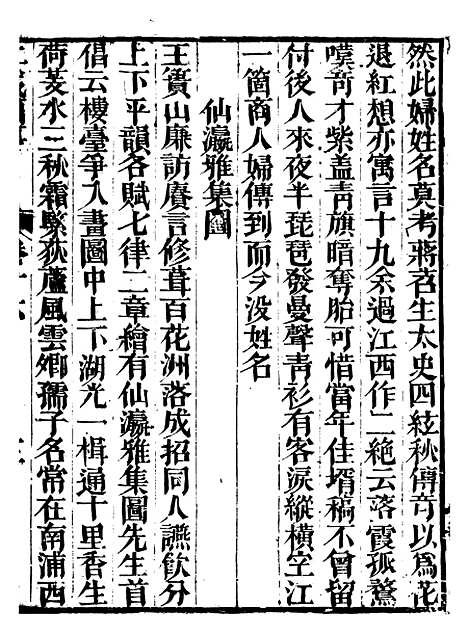 然此婦姓名莫考蔣苕生太史四絃秋傳奇以爲花
退紅想亦寓言十九余過江西作二絕云落霞孤鶩
嘆奇才紫盖靑旗暗奪胎可惜當年佳壻稿不曾留
付後人來夜半琵琶發曼聲靑衫有客淚縱橫空江
一箇商人婦傳到而今没姓名
仙瀛雅集圖
王蕢山廉訪賡言修葺百花洲落成招同人讌飮分
上下平韻各賦七律二章繪有仙瀛雅集圖先生首
倡云樓臺爭入畫圖中上下湖光一楫通十里香生
荷芰水三秋霜繫荻蘆風雲卿孺子名常在南浦西